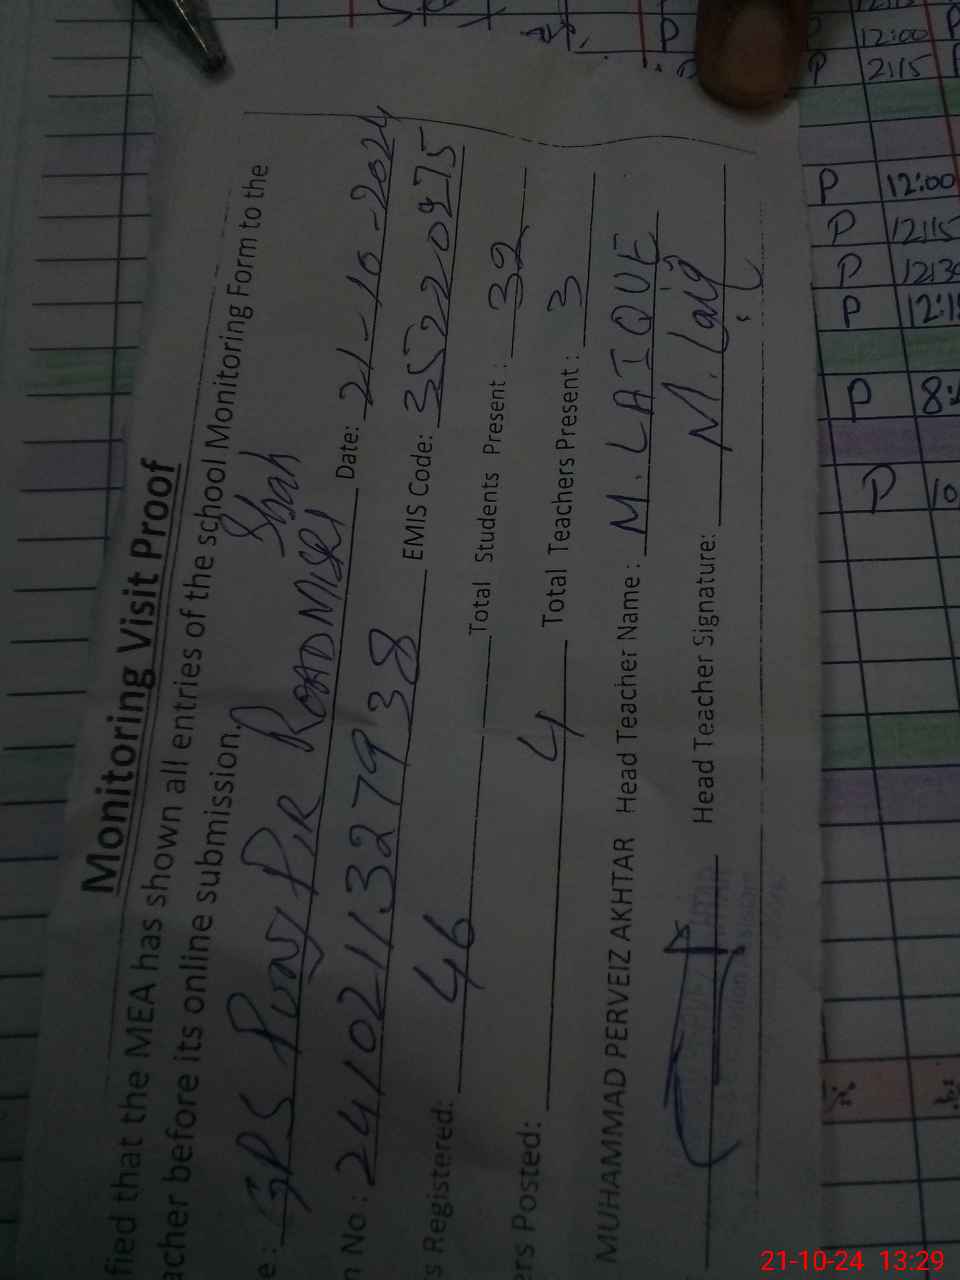 Monitoring Visit Proof
fied that the MEA has shown all entries of the school Monitoring Form to the
acher before its online submission.
e: GPS PIR ROAD MISRI Shah Date: 21-10-2024
n No: 2410211327938 EMIS Code: 35220975
s Registered: 46 Total Students Present: 32
ers Posted: 4 Total Teachers Present: 3
MUHAMMAD PERVEIZ AKHTAR Head Teacher Name: M. LAIQUE
Head Teacher Signature: M. Laiq
P
12:00
P 2115
P 12:00
P 12115
P
P
P
P 10
21-10-24 13:29